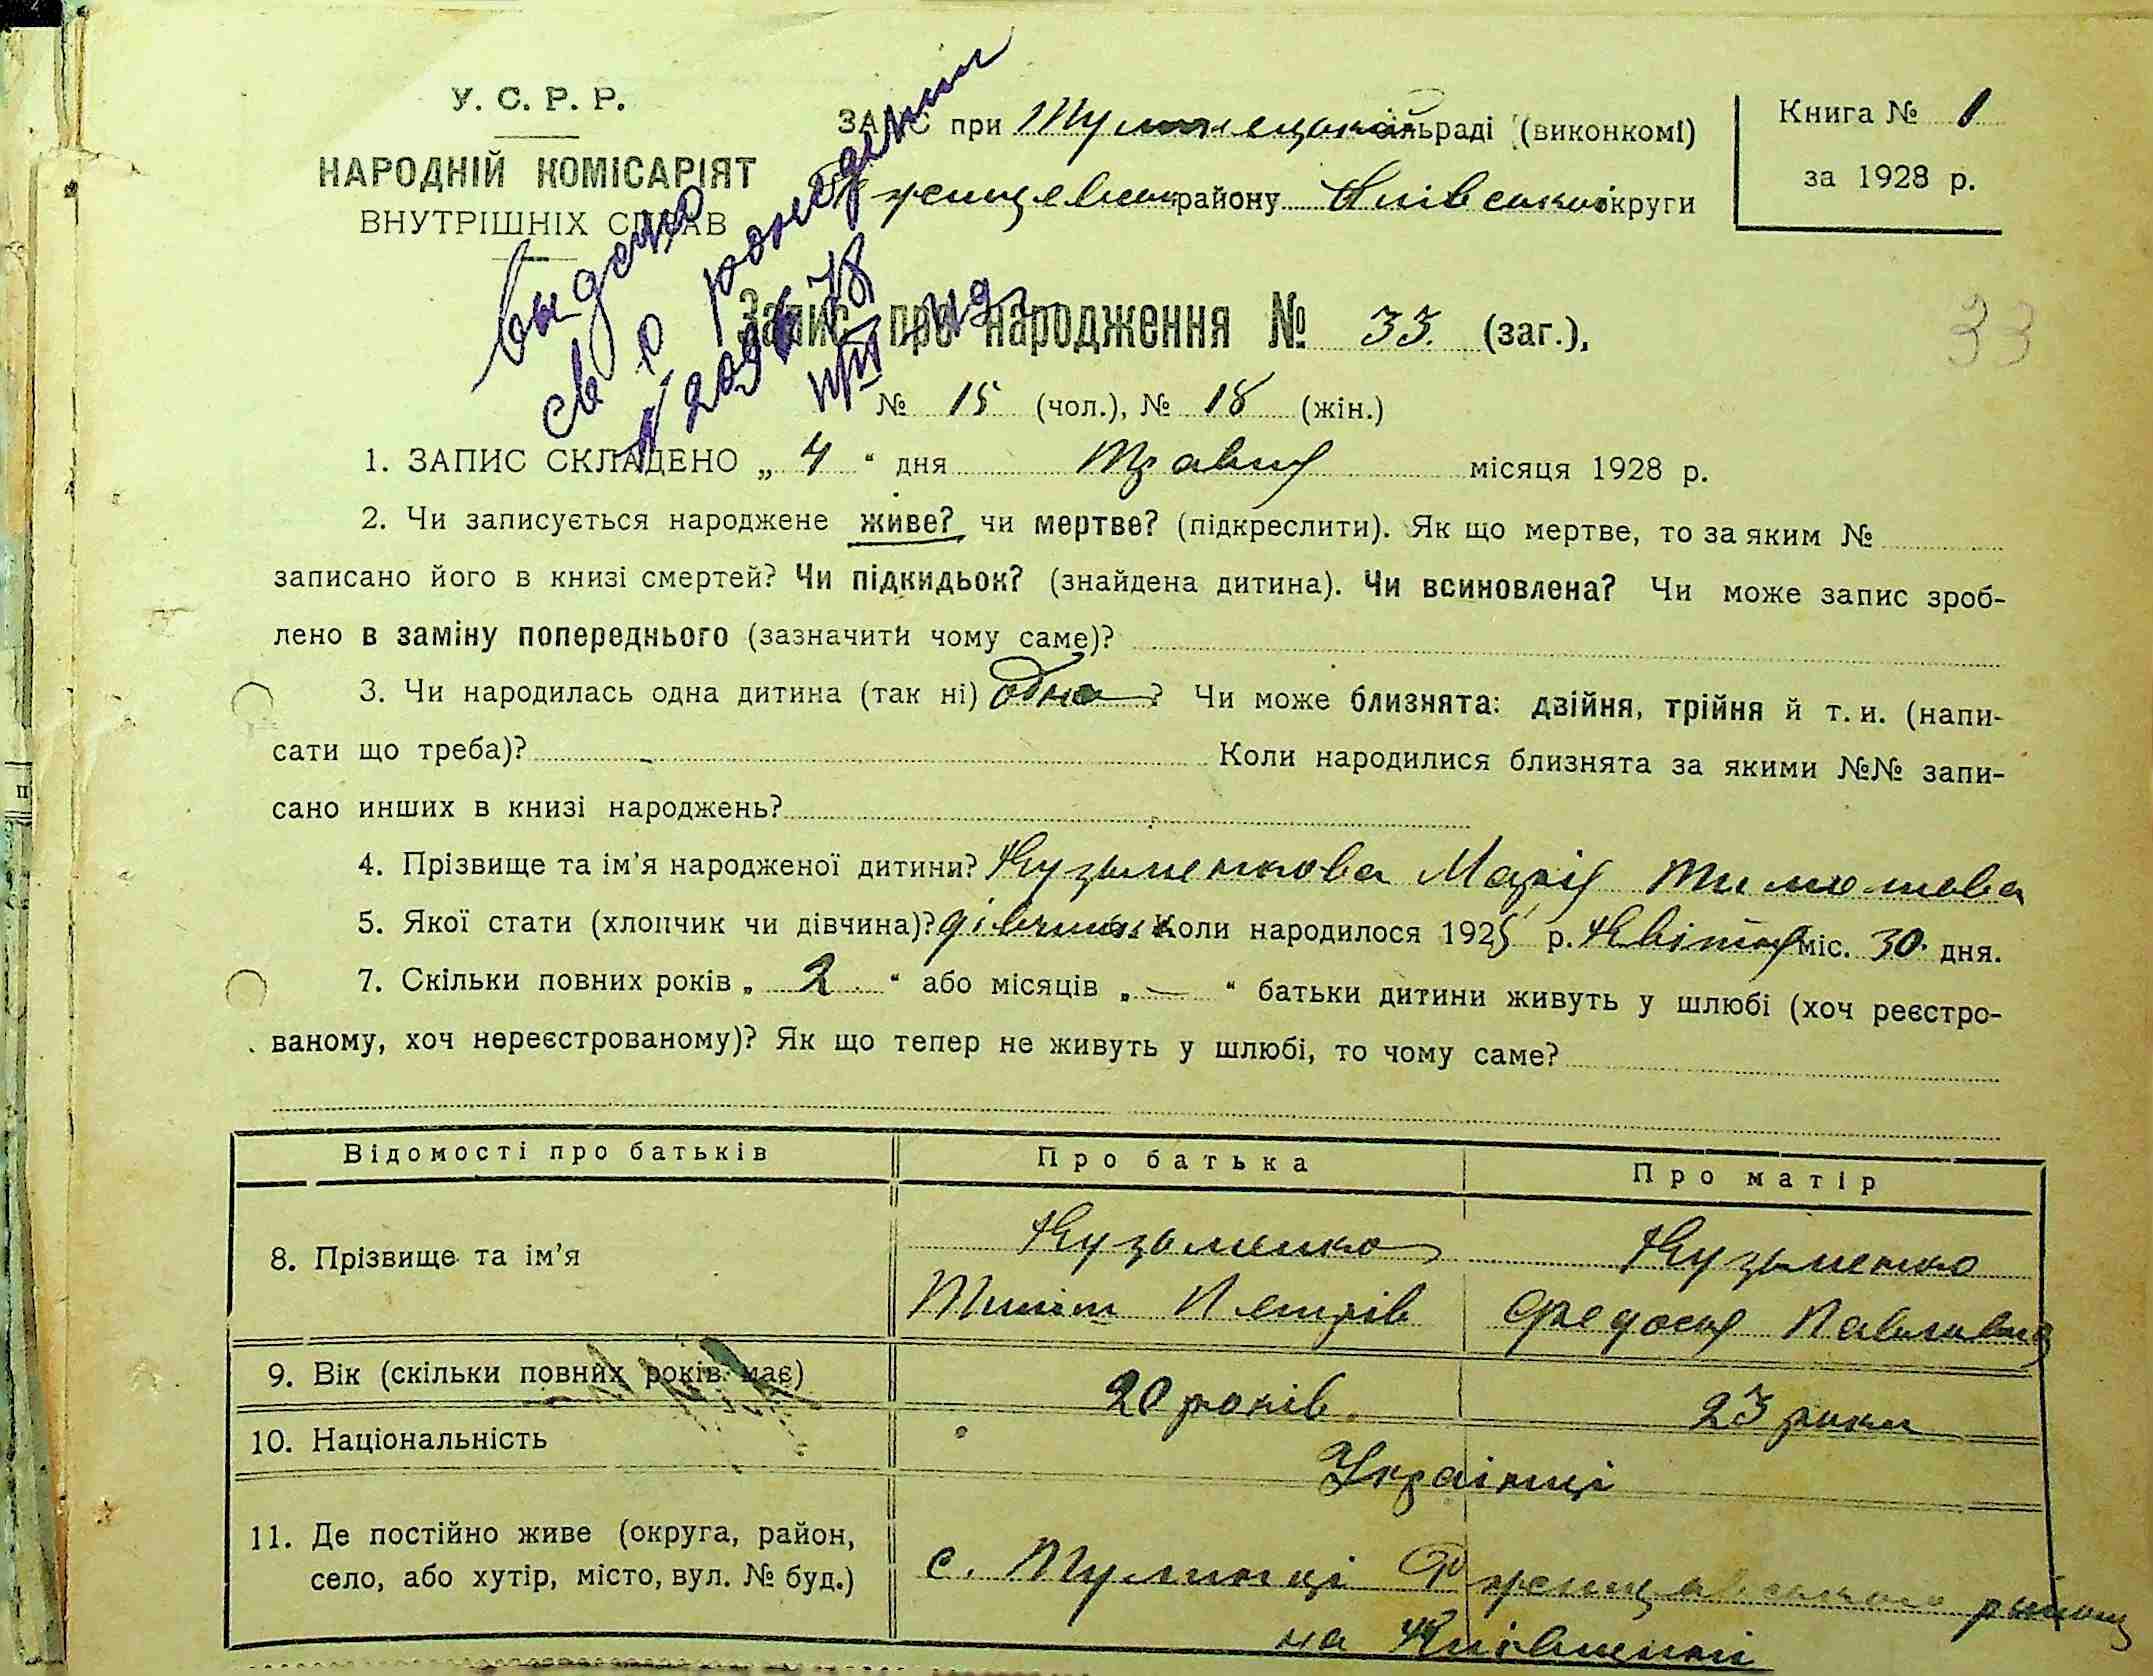 У. С. Р. Р.
НАРОДНІЙ КОМІСАРІЯТ
ВНУТРІШНІХ СПРАВ
ЗАГС при Тулинецькій сільраді (виконкомі)
Ржищевськ району Київської округи
Книга № 1
за 1928 р.
выдано
св о рождении
Запис про народження № 33. (заг.),
33
№ 15 (чол.), № 18 (жін.)
1. ЗАПИС СКЛАДЕНО „ 4 “ дня Травня місяця 1928 р.
2. Чи записується народжене живе? чи мертве? (підкреслити). Як що мертве, то за яким №
записано його в книзі смертей? Чи підкидьок? (знайдена дитина). Чи всиновлена? Чи може запис зроб-
лено в заміну попереднього (зазначити чому саме)?
3. Чи народилась одна дитина (так ні) одна ? Чи може близнята: двійня, трійня й т. и. (напи-
сати що треба)? Коли народилися близнята за якими №№ запи-
сано инших в книзі народжень?
4. Прізвище та ім'я народженої дитини? Кузьменкова Марія Тимошева
5. Якої стати (хлопчик чи дівчина)? дівчина Коли народилося 1928 р. Квітня міс. 30 дня.
7. Скільки повних років „ 2 “ або місяців „ — “ батьки дитини живуть у шлюбі (хоч реєстро-
ваному, хоч нереєстрованому)? Як що тепер не живуть у шлюбі, то чому саме?
Відомості про батьків
Про батька
Про матір
8. Прізвище та ім'я
Кузьменко
Тиміш Петрів
Кузьменко
Федося Павлівна
9. Вік (скільки повних років має)
20 років
23 роки
10. Національність
Українці
11. Де постійно живе (округа, район,
село, або хутір, місто, вул. № буд.)
с. Тулинці Ржищевського району
на Київщині